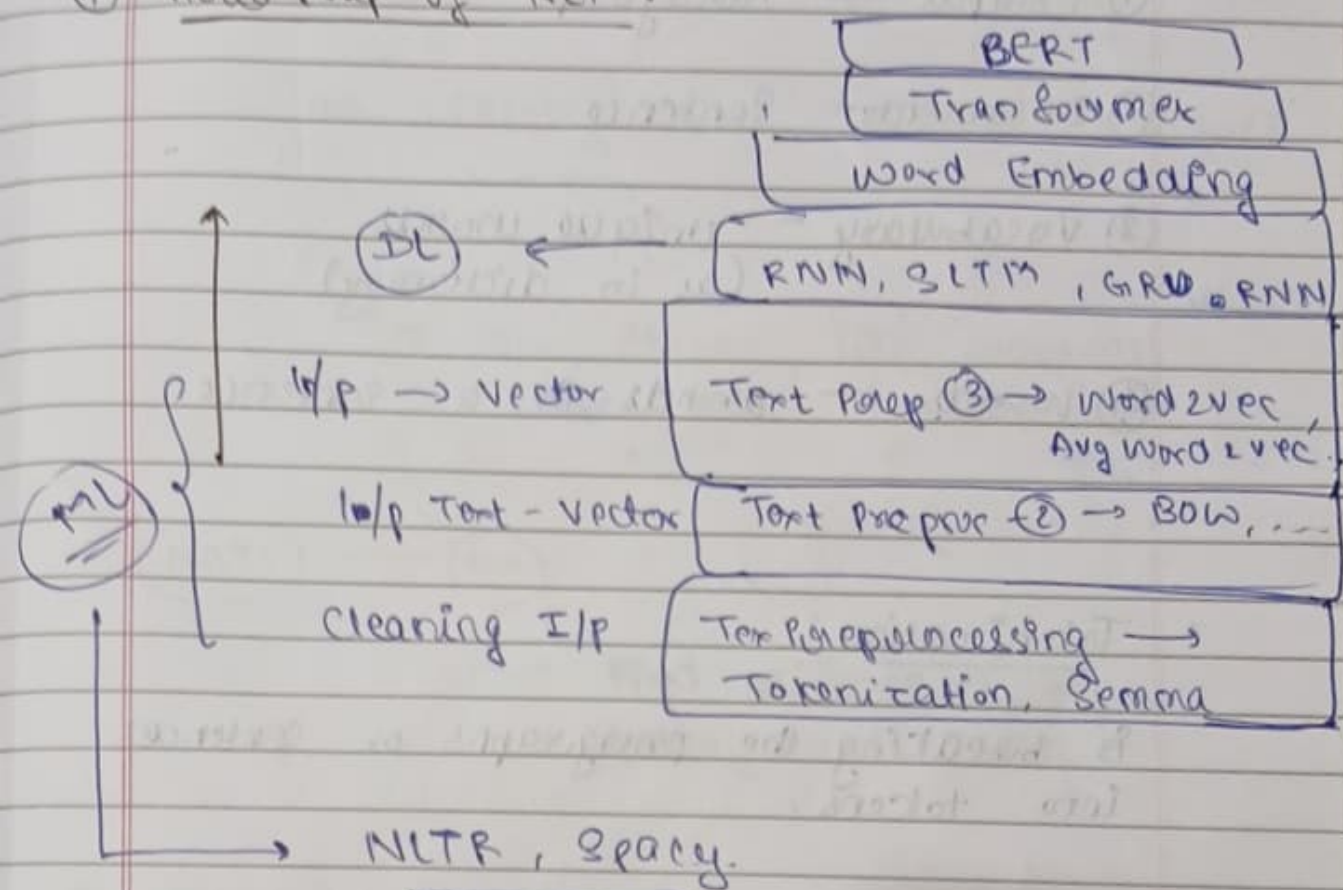 BERT
Transformer
Word Embedding
DL ← RNN, SLTM, GRU, RNN
I/p → Vector Text Prep ③ → Word2vec,
Avg Word2vec.
ML
I/p Text - Vector Text Preproc ② → BOW, ....
Cleaning I/p Tex Preprocessing →
Tokenization, Semma
→ NLTK, Spacy.